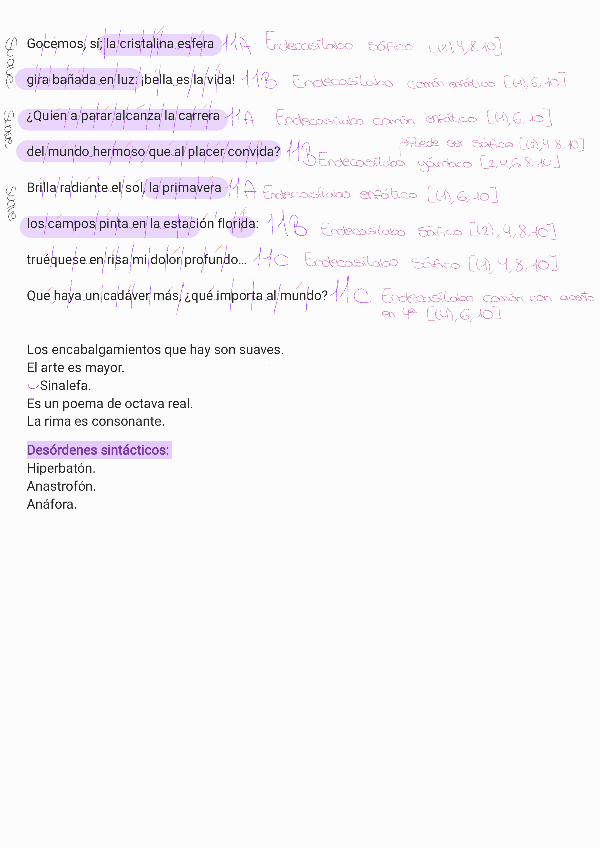 Suave
Gocemos, sí; la cristalina esfera 11A Endecasílabo sáfico [(2),4,8,10]
gira bañada en luz: ¡bella es la vida! 11B Endecasílabo común enfático [(1),6,10]
Suave
¿Quien a parar alcanza la carrera 11A Endecasílabo común enfático [(1),6,10]
puede ser sáfico [(2),4,8,10]
del mundo hermoso que al placer convida? 11B Endecasílabo yámbico [2,4,6,8,10]
Suave
Brilla radiante el sol, la primavera 11A Endecasílabo enfático [(1),6,10]
los campos pinta en la estación florida: 11B Endecasílabo sáfico [(2),4,8,10]
truéquese en risa mi dolor profundo... 11C Endecasílabo sáfico [(1),4,8,10]
Que haya un cadáver más, ¿qué importa al mundo? 11C Endecasílabo común con acento
en 4ª [(4),6,10]
Los encabalgamientos que hay son suaves.
El arte es mayor.
Sinalefa.
Es un poema de octava real.
La rima es consonante.
Desórdenes sintácticos:
Hiperbatón.
Anastrofón.
Anáfora.